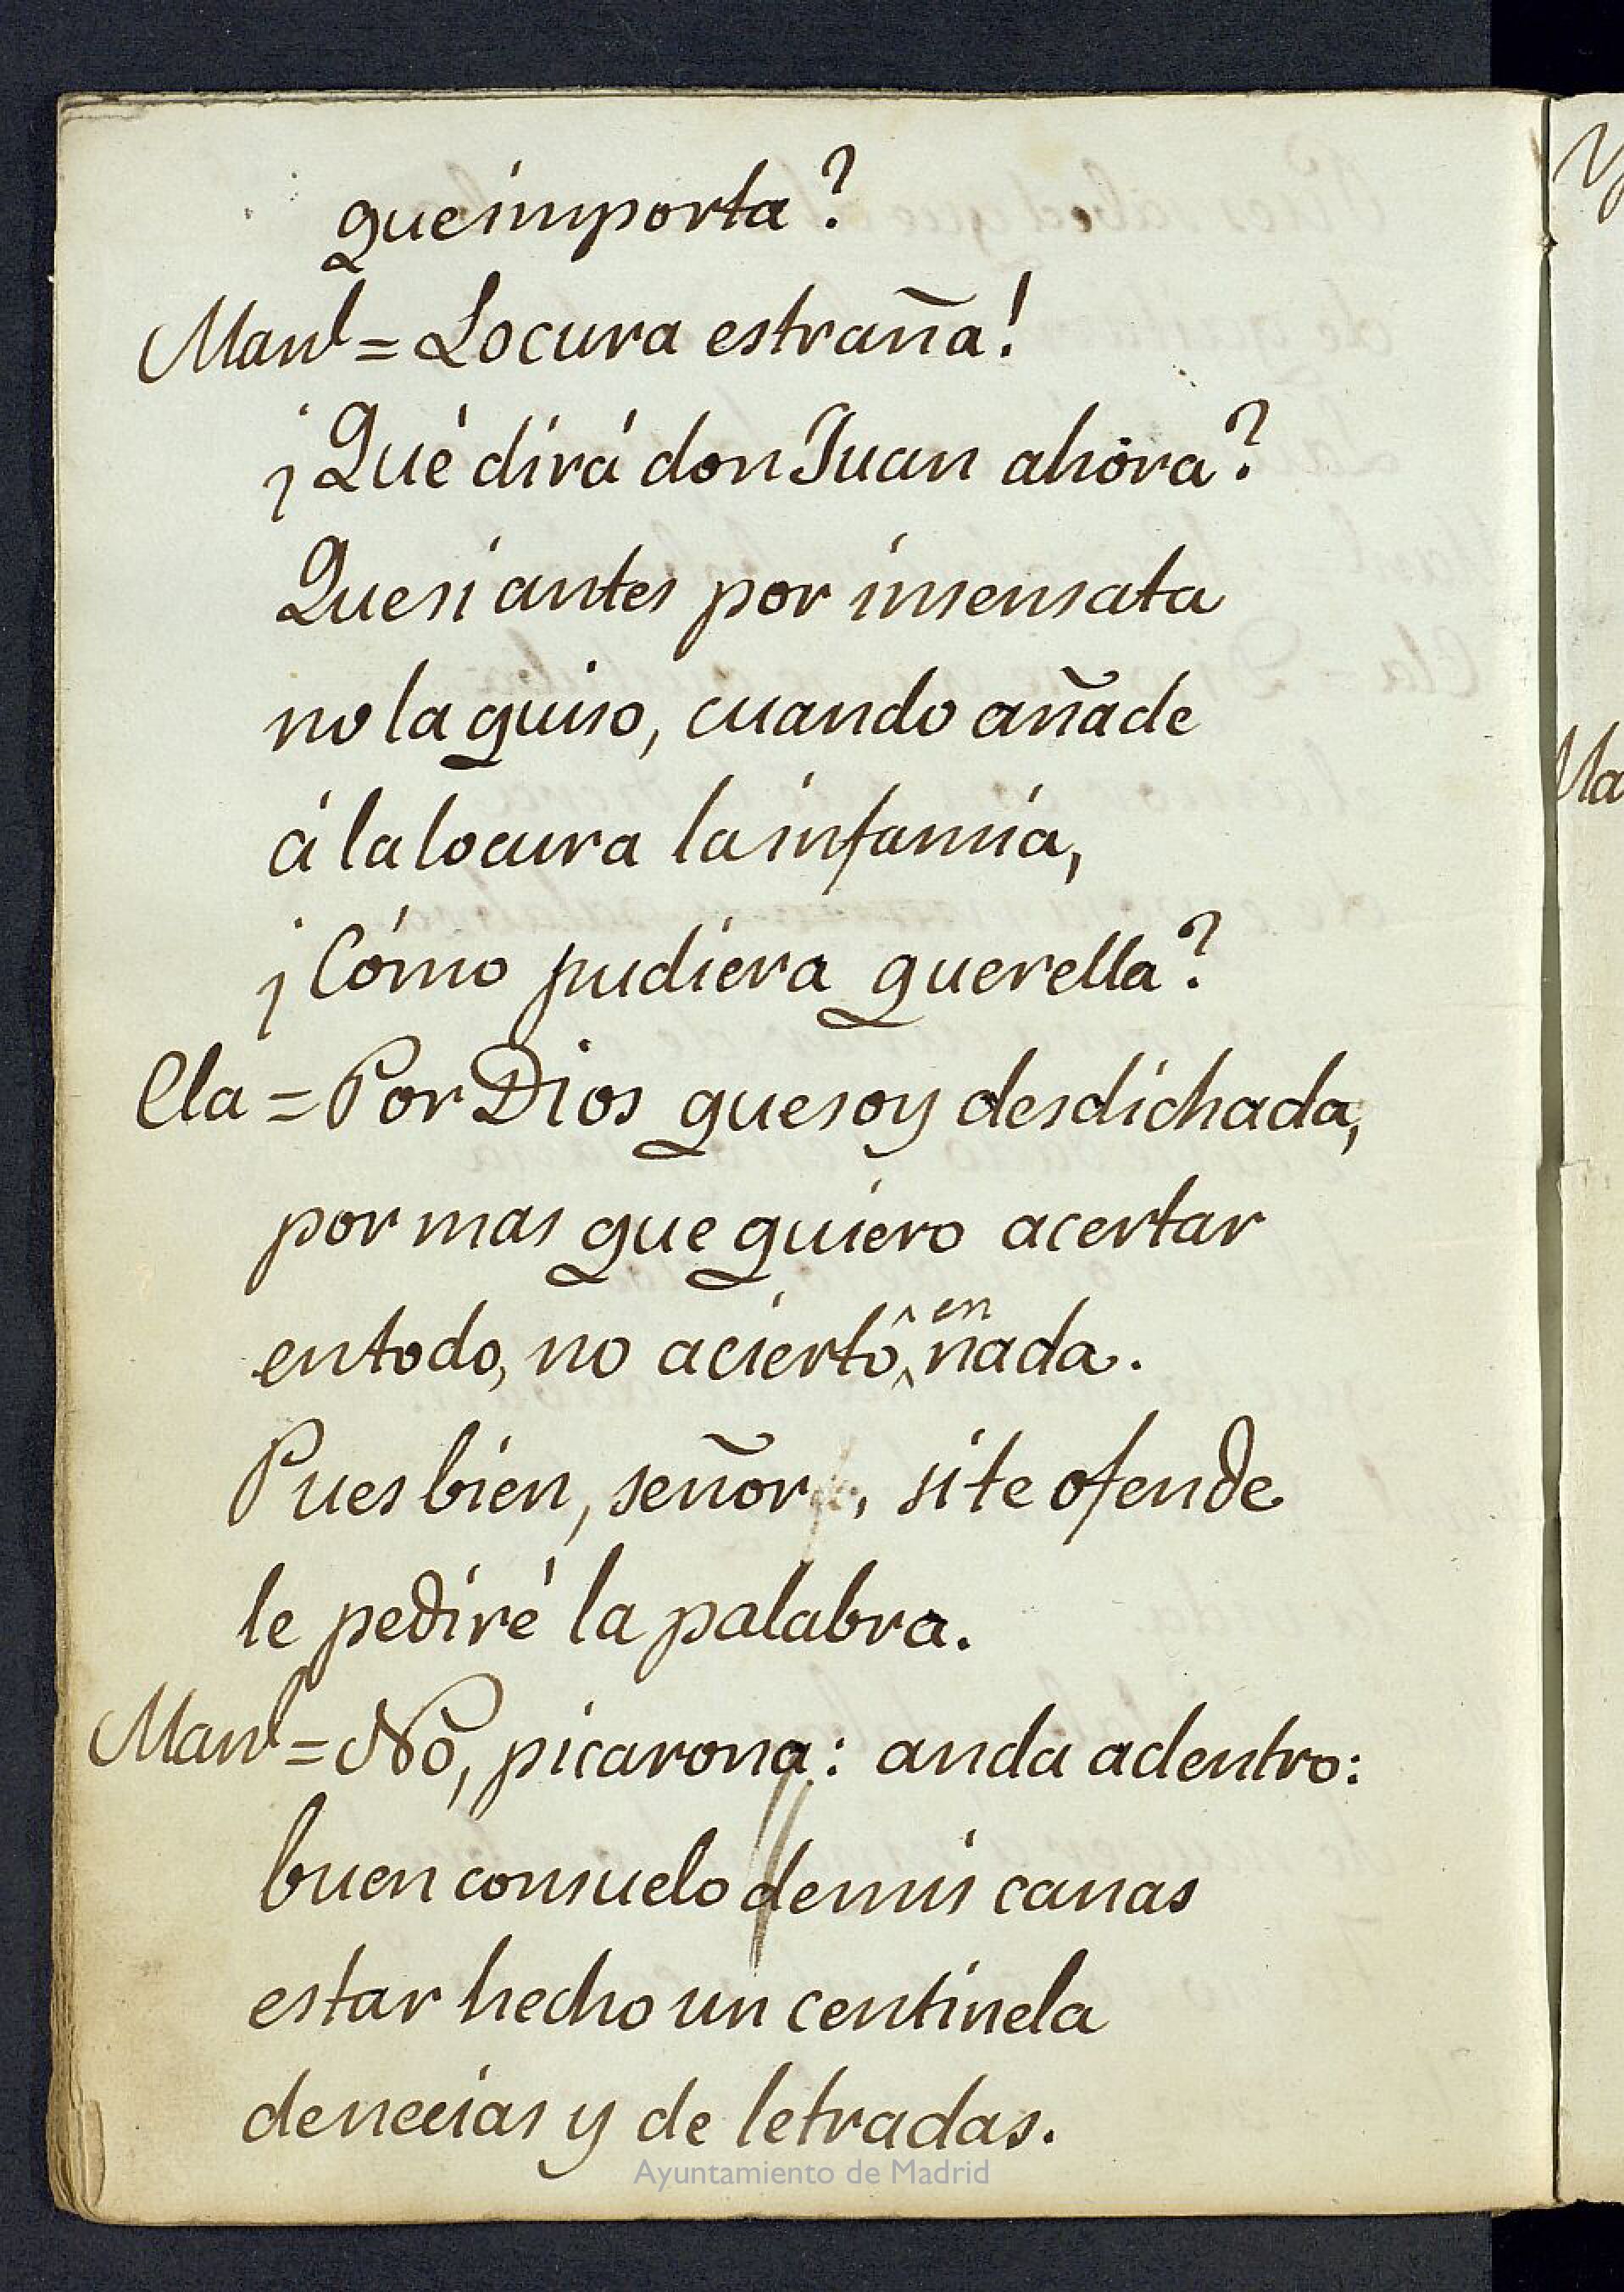 que importa?
Manl = Locura estraña!
¡Qué dirá don Juan ahora?
Que si antes por insensata
no la quiso, cuando añade
á la locura la infamia,
¡Cómo pudiera querella?
Cla = Por Dios que soy desdichada,
por mas que quiero acertar
en todo, no acierto en nada.
Pues bien, señor, si te ofende
le pediré la palabra.
Manl = No, picarona: anda adentro:
buen consuelo de mis canas
estar hecho un centinela
de necias y de letradas.
Ma
Ayuntamiento de Madrid